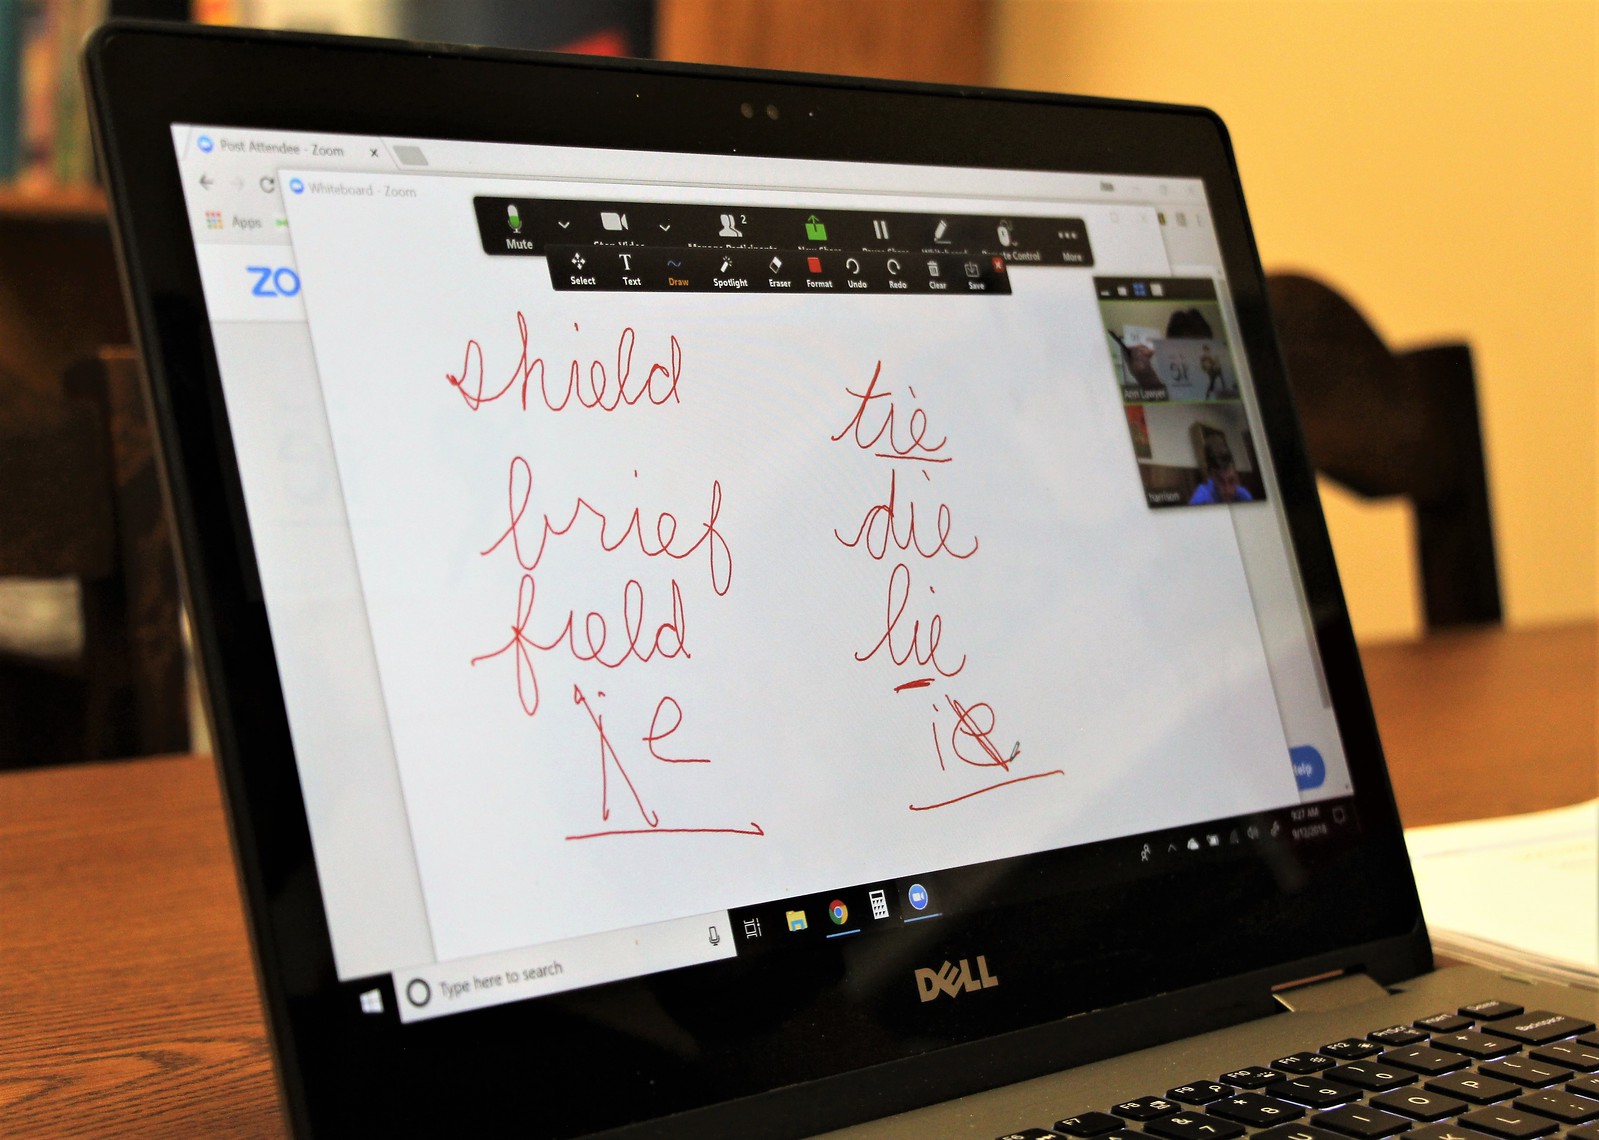 Post Attendee - Zoom
Whiteboard - Zoom
Apps
Mute
2
Remote Control
More
Select
Text
Draw
Spotlight
Eraser
Format
Undo
Redo
Clear
Save
ZO
shield
brief
field
ie
tie
die
lie
ie
Ann Lawyer
harrison
Help
9:27 AM
9/12/2018
Type here to search
DELL
Backspace
F12
F11
F10
F9
F8
F7
F6
P
O
I
U
L
8
7